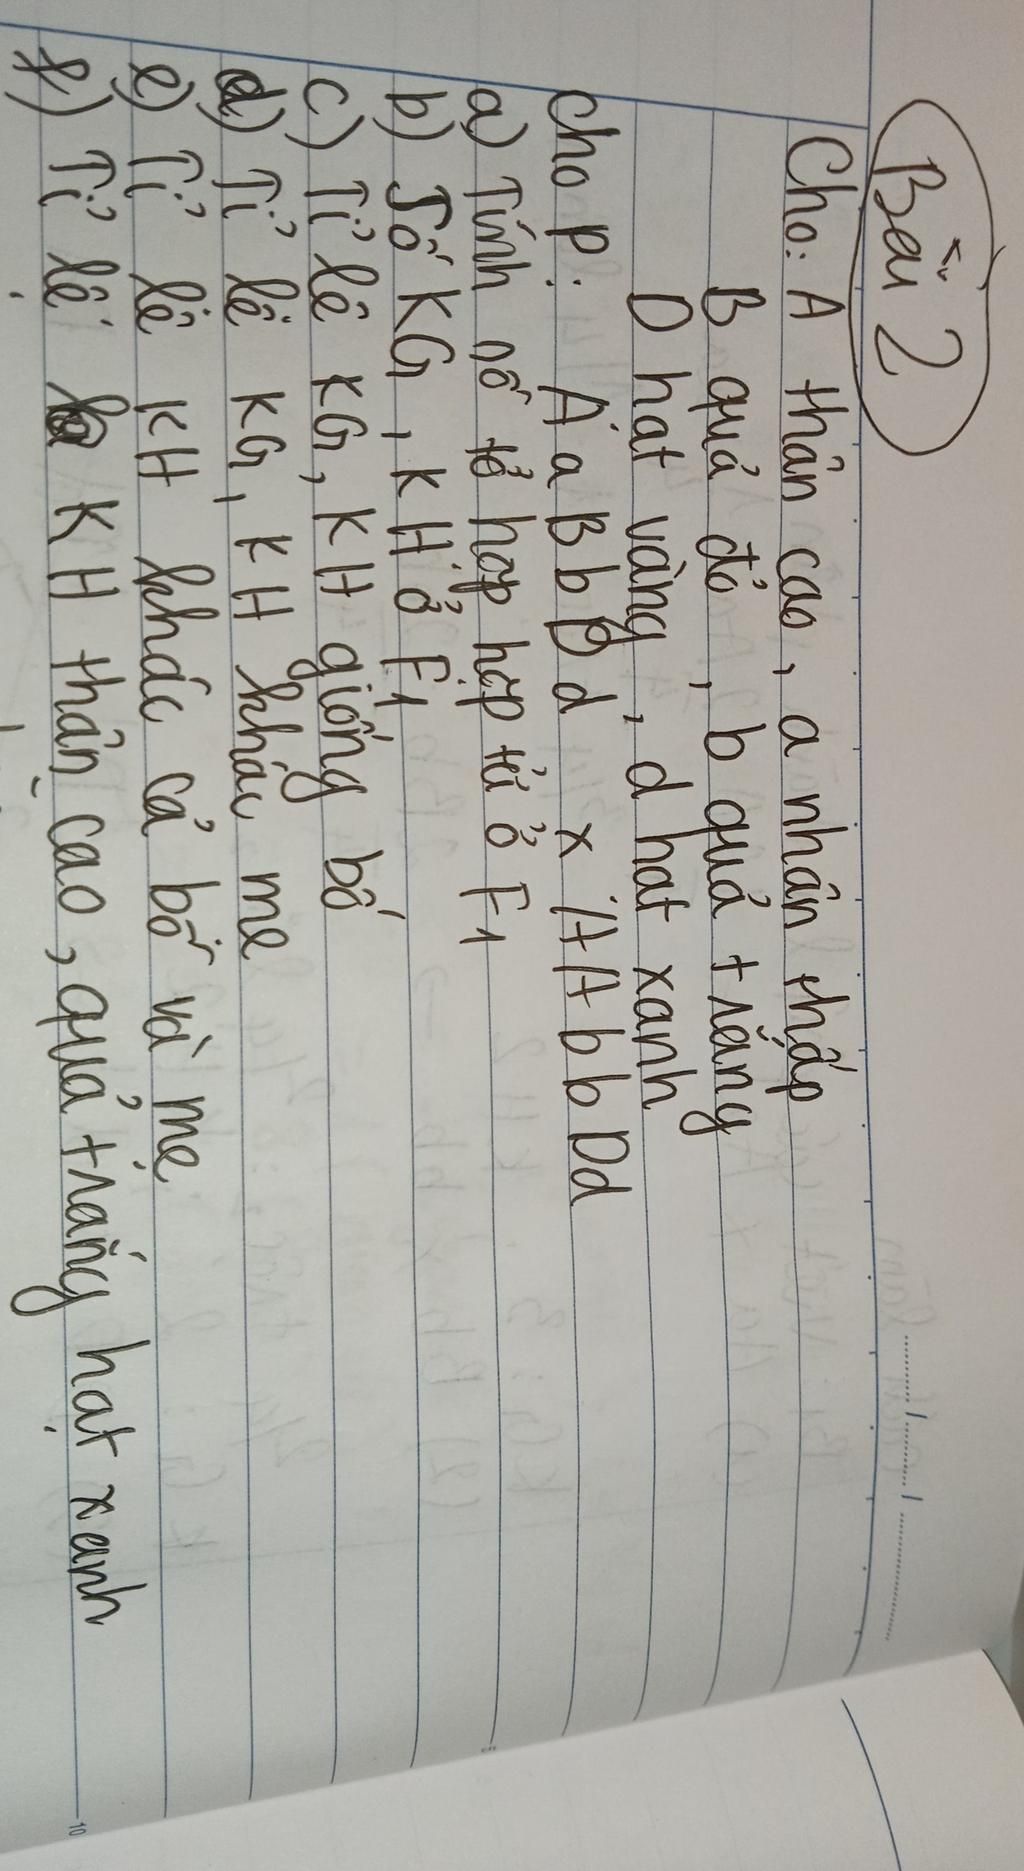 Bài 2
Cho: A thân cao, a nhân tháp
B quả đỏ, b quả trắng
D hat vàng, d hat xanh
Cho p: AaBbDd x AAbbDd
a) Tính số tổ hợp hợp tử ở F1
b) Số KG, KH ở F1
c) Tỉ lê KG, KH giống bố
d) Tỉ lê KG, KH khác me
e) Tỉ lê KH khác cả bố và me
f) Tỉ lê KH thân cao, quả trắng hạt xanh
5
10